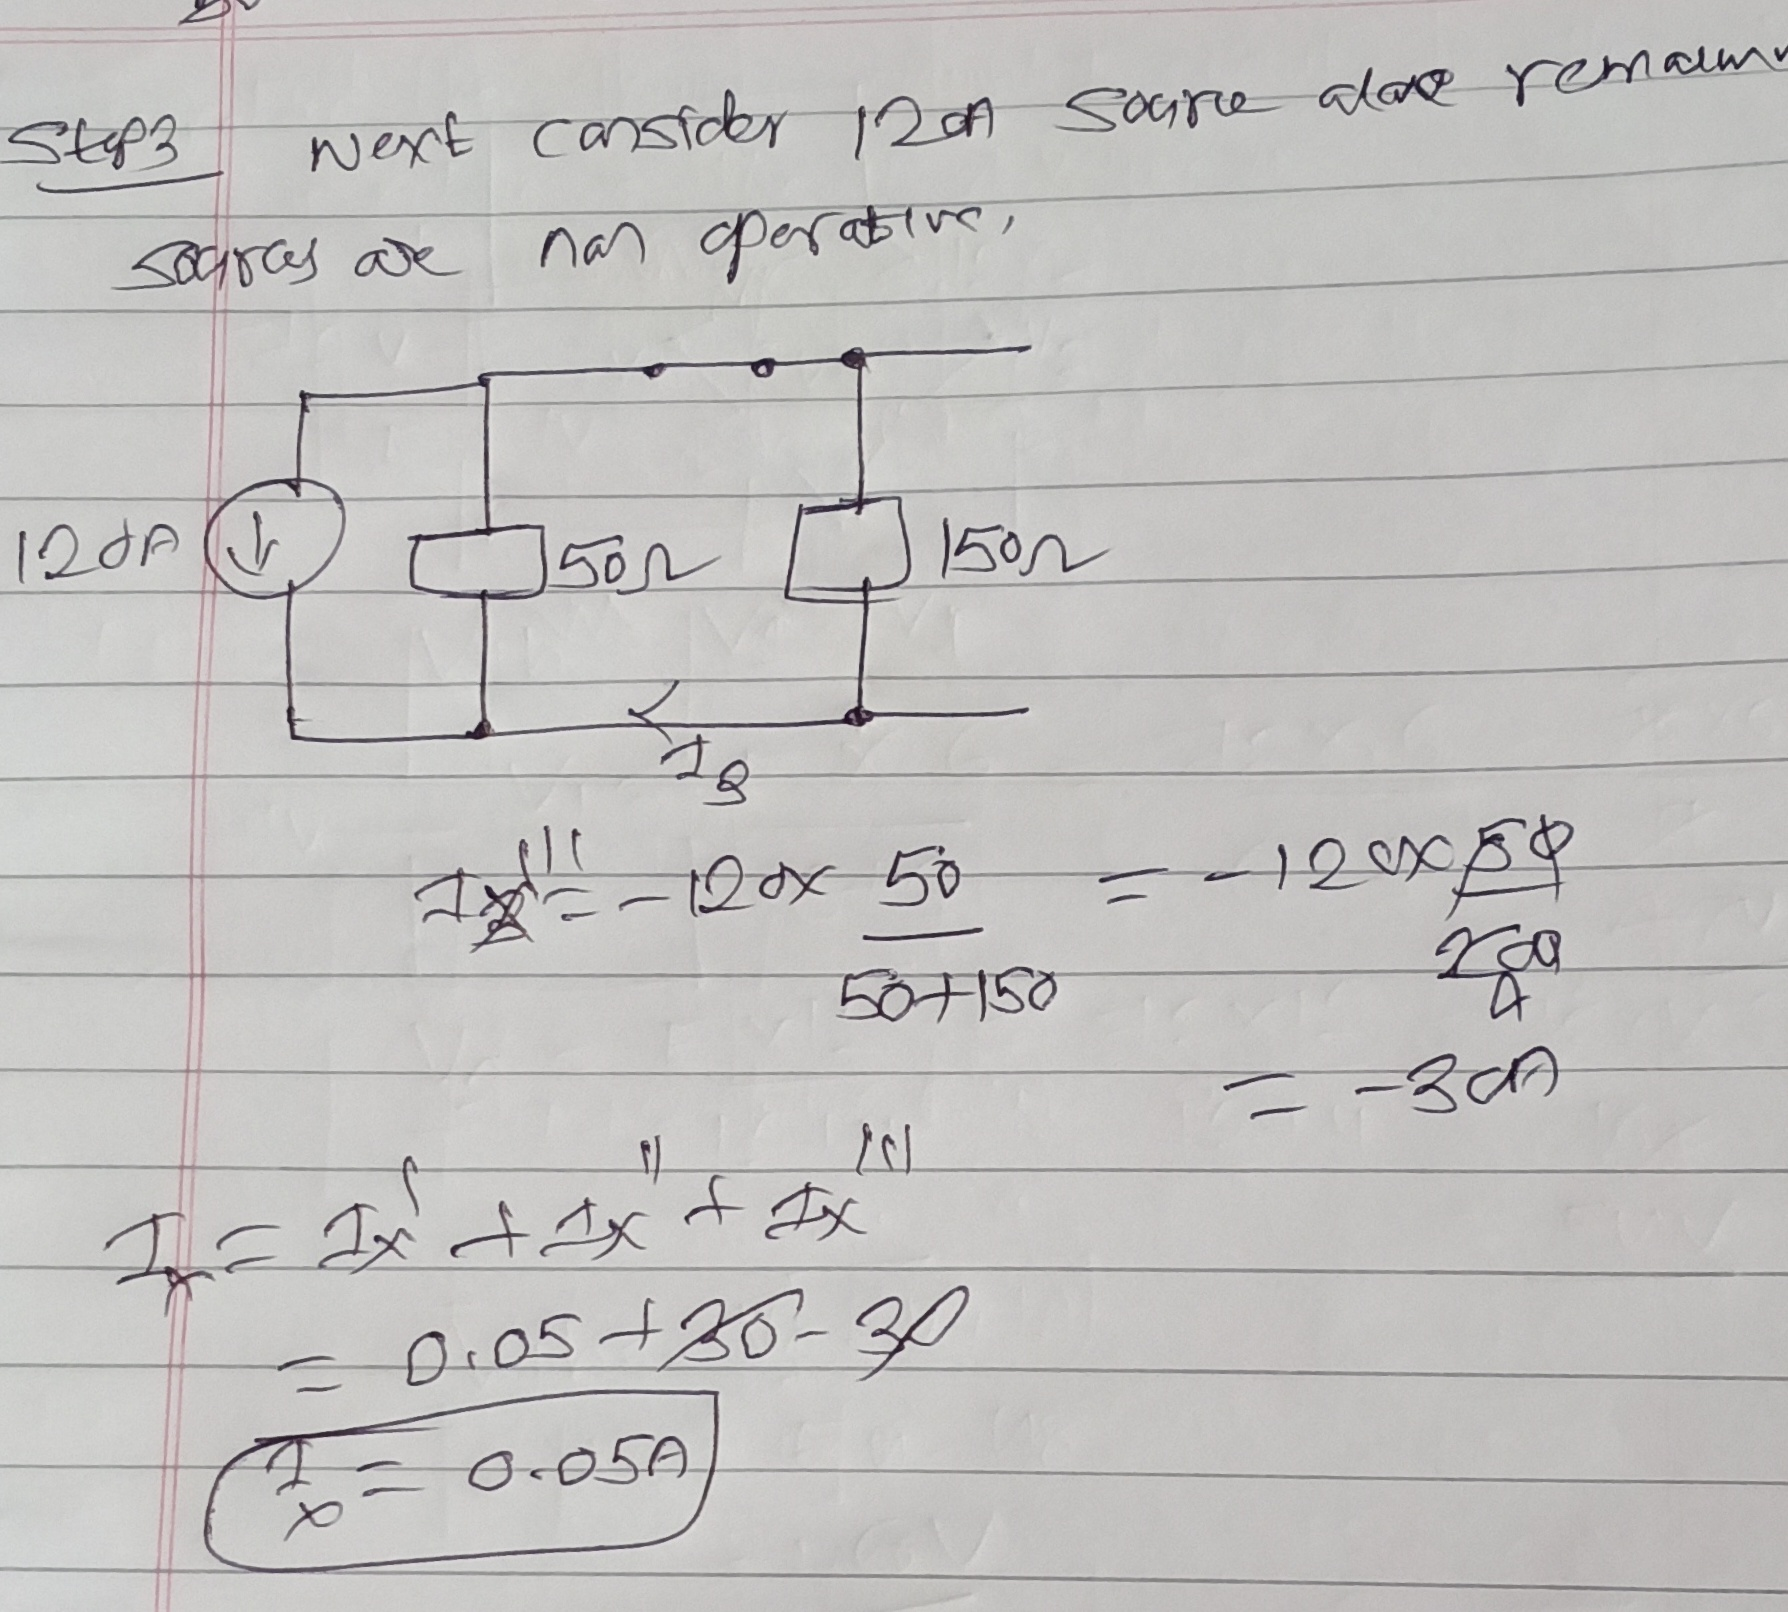 Step3 Next consider 120A source alone remainin
sources are non operative.
120A 50Ω 150Ω
I3
Ix''' = -120x 50/50+150 = -120x50/200
4
= -30A
Ix = Ix' + Ix'' + Ix'''
= 0.05+30-30
Ix = 0.05A